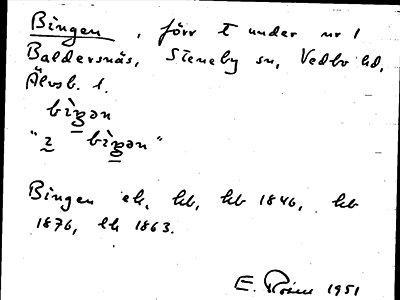 Bingen, förr t under nr 1
Baldersnäs, Steneby sn, Vedbo hd,
Älvsb. l.
bìŋən
"i bìŋən"
Bingen ek, kb, hb 1846, kb
1876, lk 1863.
E. Rosen 1951